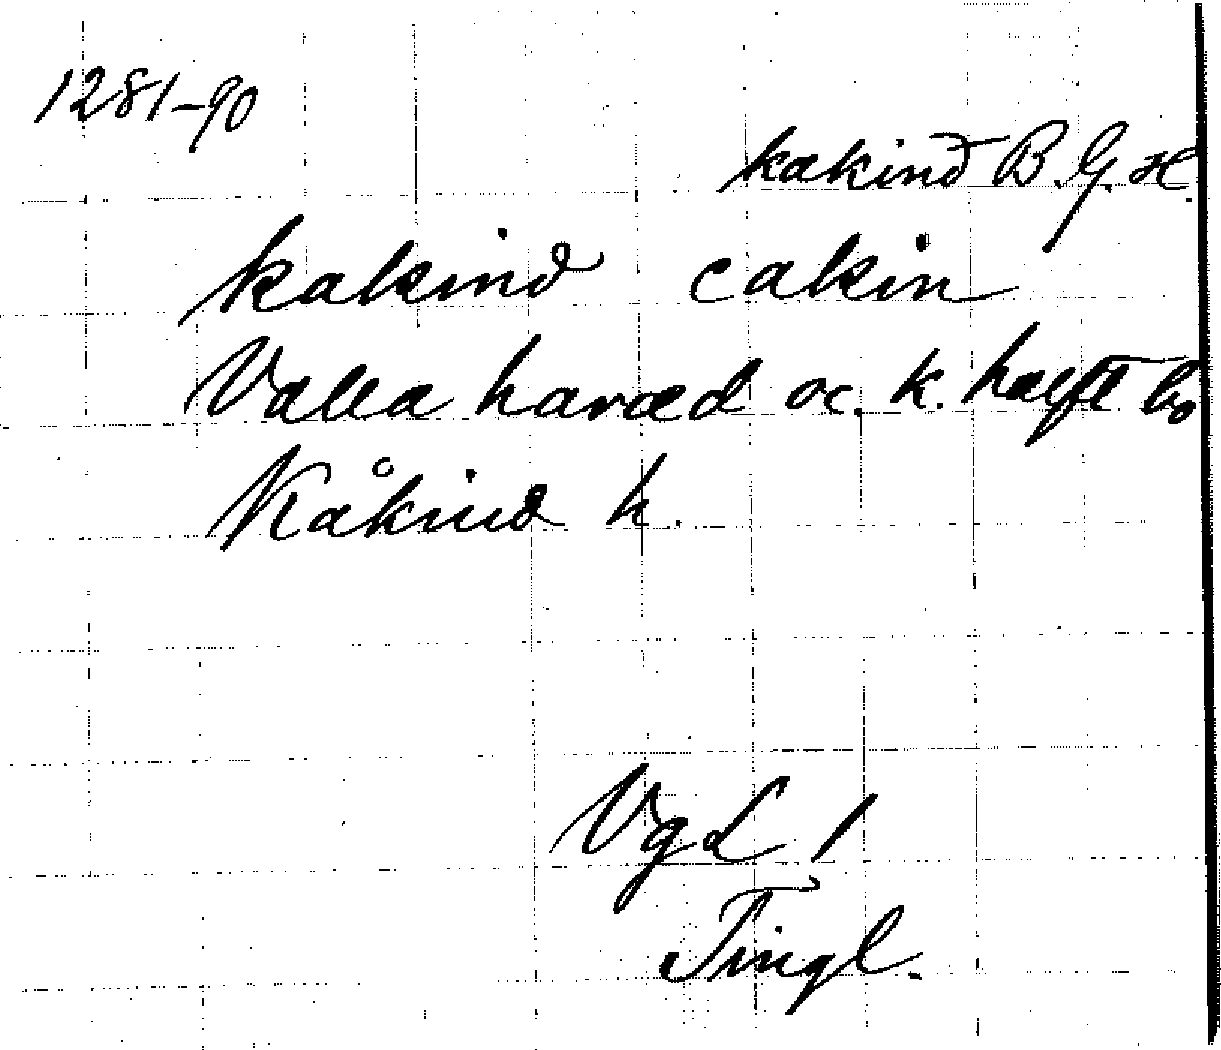 1281-90
kakind B. G. H.
kakind cakin
Valla haræd oc. k. hælft bo
Kåkind h.
VgL 1
Tingl.